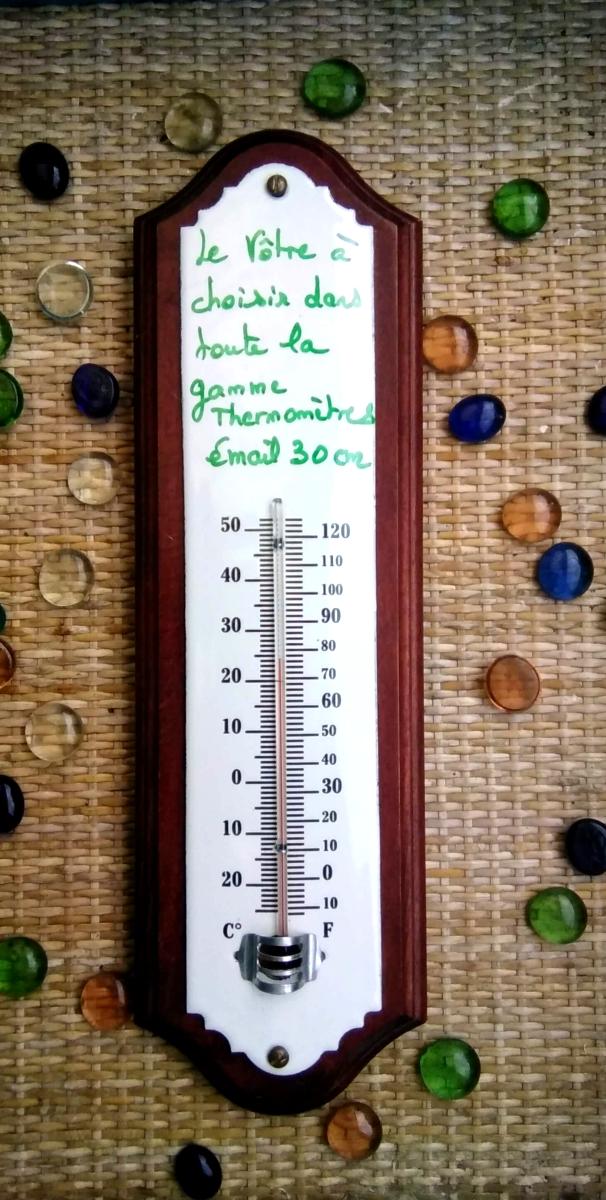 Le Vôtre à
choisir dans
toute la
gamme
Thermomètres
émail 30 cm
50 120
110
40 100
30 90
80
20 70
60
10 50
40
0 30
20
10 10
20 0
10
C° F